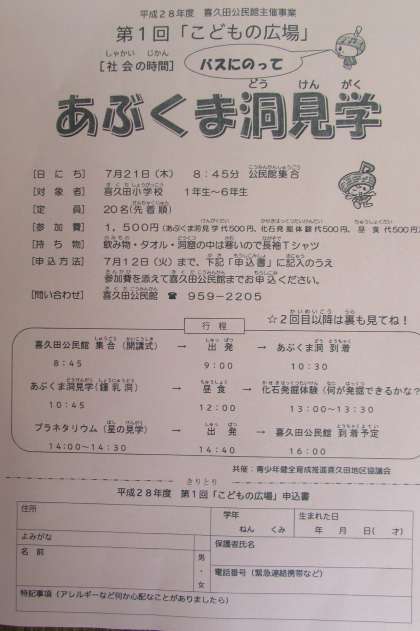 平成28年度 喜久田公民館主催事業
第1回「こどもの広場」
しゃかい じかん
[社会の時間] バスにのって
どう けん がく
あぶくま洞見学
こうみんかんしゅうごう
[日にち] 7月21日(木) 8:45分 公民館集合
[対象者] 喜久田小学校 1年生~6年生
[定員] 20名(先着順)
[参加費] 1,500円(あぶくま洞見学代500円、化石発掘体験代500円、昼食代500円)
[持ち物] 飲み物・タオル・洞窟の中は寒いので長袖Tシャツ
[申込方法] 7月12日(火)まで、下記「申込書」に記入のうえ
参加費を添えて喜久田公民館までお申込ください。
[問い合わせ] 喜久田公民館 ☎ 959-2205
☆2回目以降は裏も見てね!
行程
喜久田公民館 集合(開講式) → 出発 → あぶくま洞 到着
8:45 9:00 10:30
あぶくま洞見学(鍾乳洞) → 昼食 → 化石発掘体験(何が発掘できるかな?)
10:45 12:00 13:00~13:30
プラネタリウム(星の見学) → 出発 → 喜久田公民館 到着予定
14:00~14:30 14:40 16:00
共催:青少年健全育成推進喜久田地区協議会
きりとり
平成28年度 第1回「こどもの広場」申込書
住所 学年 生まれた日
ねん くみ 年 月 日( 才)
よみがな 保護者氏名
名前 男・女
電話番号(緊急連絡携帯など)
特記事項(アレルギーなど何か心配なことがありましたら)